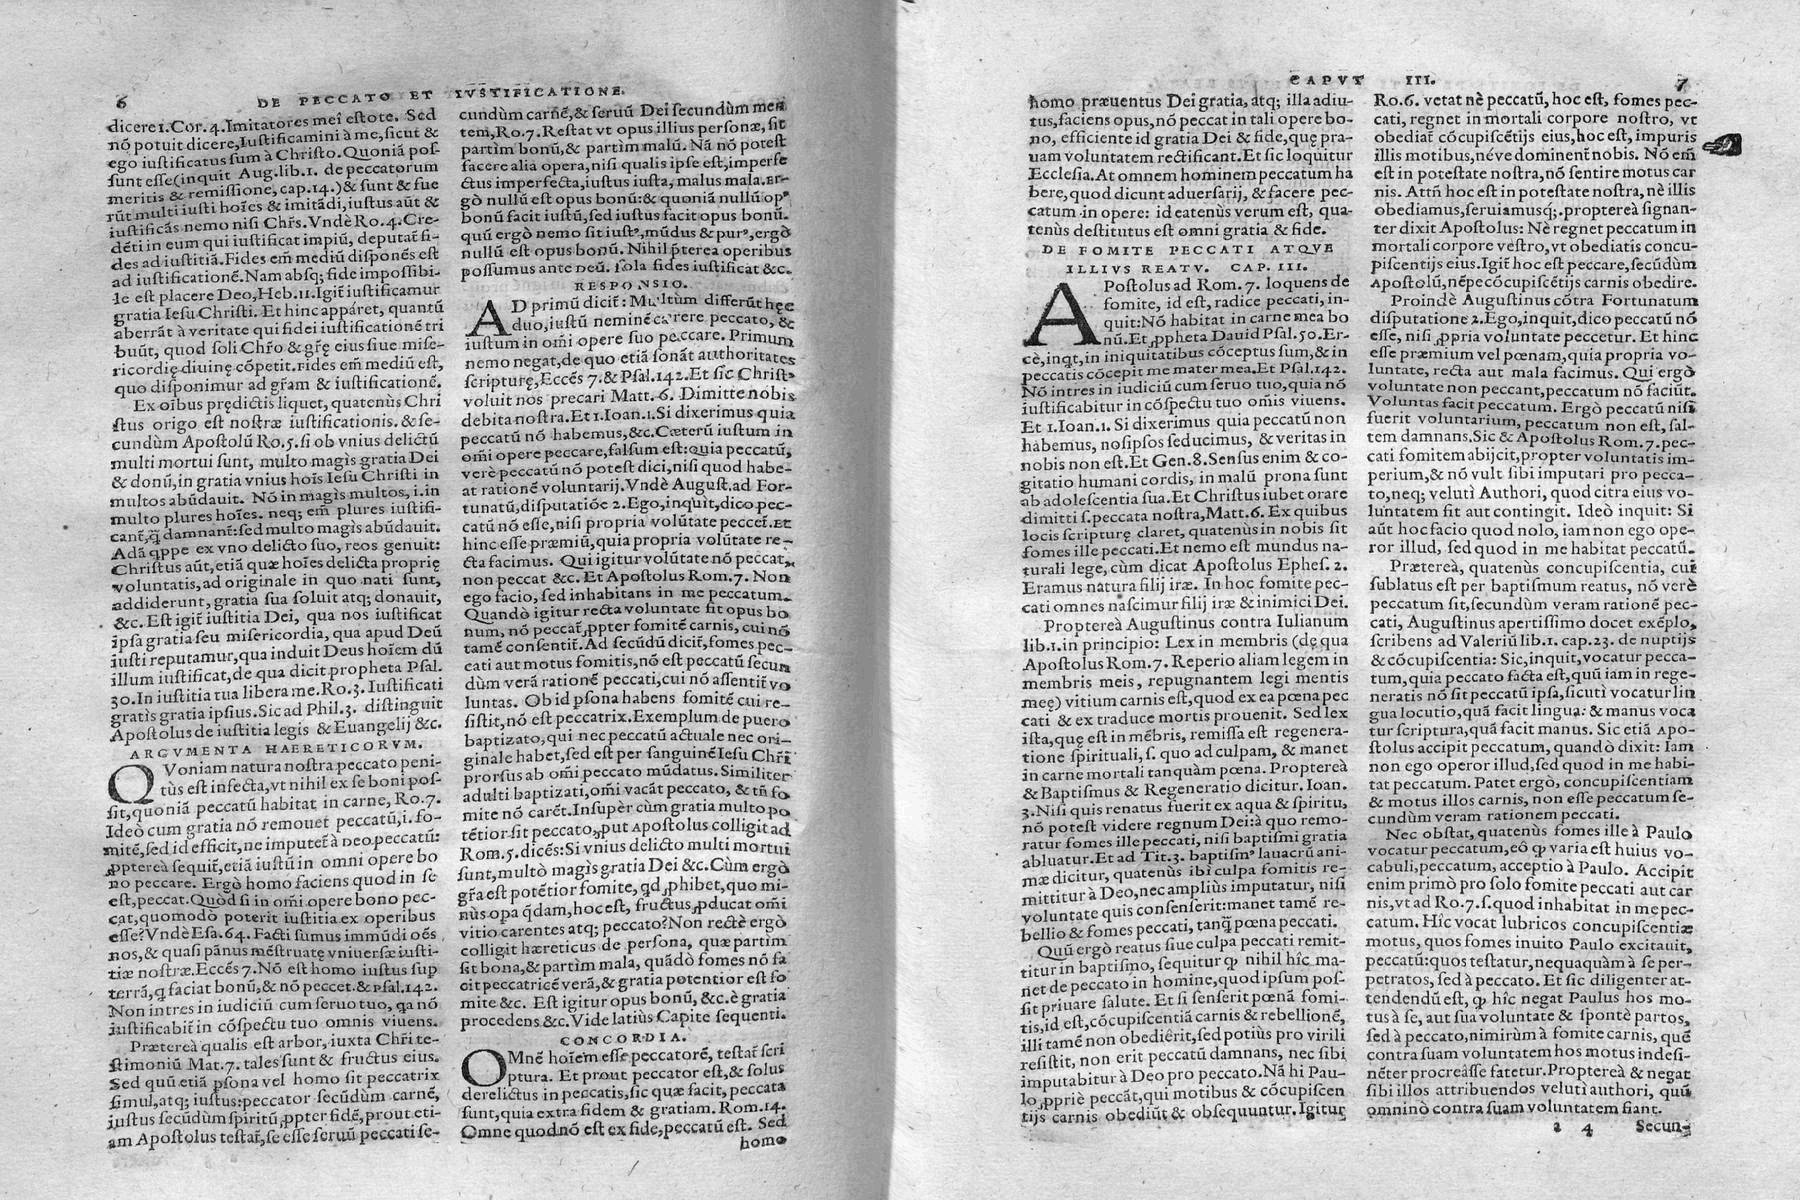 6 DE PECCATO ET IVSTIFICATIONE.
dicere 1. Cor. 4. Imitatores mei estote. Sed
nõ potuit dicere, Iustificamini à me, sicut &
ego iustificatus sum à Christo. Quoniã pos-
sunt esse (inquit Aug. lib. 1. de peccatorum
meritis & remissione, cap. 14.) & sunt & fue
rũt multi iusti hoĩes & imitãdi, iustus aũt &
iustificãs nemo nisi Chrs̃. Vndè Ro. 4. Cre-
dẽti in eum qui iustificat impiũ, deputat̃ fi-
des ad iustitiã. Fides em̃ mediũ disponẽs est
ad iustificationẽ. Nam absq; fide impossibi-
le est placere Deo, Heb. 11. Igit̃ iustificamur
gratia Iesu Christi. Et hinc apparet, quantũ
aberrãt à veritate qui fidei iustificationẽ tri
buũt, quod soli Chr̃o & gr̃ę eius siue mise-
ricordię diuinę cõpetit. Fides em̃ mediũ est,
quo disponimur ad gr̃am & iustificationẽ.
Ex oĩbus prędictis liquet, quatenùs Chri
stus origo est nostræ iustificationis. & se-
cundùm Apostolũ Ro. 5. si ob vnius delictũ
multi mortui sunt, multo magìs gratia Dei
& donũ, in gratia vnius hoĩs Iesu Christi in
multos abũdauit. Nõ in magìs multos, i. in
multo plures hoĩes. neq; em̃ plures iustifi-
cant̃, q̃ damnant̃: sed multo magìs abũdauit.
Adã qppe ex vno delicto suo, reos genuit:
Christus aũt, etiã quæ hoĩes delicta proprię
voluntatis, ad originale in quo nati sunt,
addiderunt, gratia sua soluit atq; donauit,
&c. Est igit̃ iustitia Dei, qua nos iustificat
ipsa gratia seu misericordia, qua apud Deũ
iusti reputamur, qua induit Deus hoĩem dũ
illum iustificat, de qua dicit propheta Psal.
30. In iustitia tua libera me. Ro. 3. Iustificati
gratis gratia ipsius. Sic ad Phil. 3. distinguit
Apostolus de iustitia legis & Euangelij &c.
ARGVMENTA HAERETICORVM.
QVoniam natura nostra peccato peni-
tùs est infecta, vt nihil ex se boni pos-
sit, quoniã peccatũ habitat in carne, Ro. 7.
Ideò cum gratia nõ remouet peccatũ, i. fo-
mitẽ, sed id efficit, ne imputet̃ à DEO peccatũ:
ꝓptereà sequit̃, etiã iustũ in omni opere bo
no peccare. Ergò homo faciens quod in se
est, peccat. Quòd si in om̃i opere bono pec-
cat, quomodò poterit iustitia ex operibus
esse? Vndè Esa. 64. Facti sumus immũdi oẽs
nos, & quasi pãnus mẽstruatę vniuersæ iusti-
tiæ nostræ. Eccẽs 7. Nõ est homo iustus sup
terrã, q faciat bonũ, & nõ peccet. & Psal. 142.
Non intres in iudiciũ cum seruo tuo, qa nõ
iustificabit̃ in cõspectu tuo omnis viuens.
Prætereà qualis est arbor, iuxta Chr̃i te-
stimoniũ Mat. 7. tales sunt & fructus eius.
Sed quũ etiã ꝑsona vel homo sit peccatrix
simul, atq; iustus: peccator secũdùm carnẽ,
iustus secũdùm spiritũ ꝓpter fidẽ, prout eti-
am Apostolus testat̃, se esse seruũ peccati se-
cundùm carnẽ, & seruũ Dei secundùm men
tem, Ro. 7. Restat vt opus illius personæ, sit
partìm bonũ, & partìm malũ. Nã nõ potest
facere alia opera, nisi qualis ipse est, imperfe
ctus imperfecta, iustus iusta, malus mala. Er-
gò nullũ est opus bonũ: & quoniã nullũ opꝰ
bonũ facit iustũ, sed iustus facit opus bonũ.
quũ ergò nemo sit iustꝰ, mũdus & purꝰ, ergò
nullũ est opus bonũ. Nihil p̃terea operibus
possumus ante DEŨ. sola fides iustificat &c.
RESPONSIO.
AD primũ dicit̃: Multùm differũt hęc
duo, iustũ neminẽ carere peccato, &
iustum in om̃i opere suo peccare. Primum
nemo negat, de quo etiã sonãt authoritates
scripturę, Eccẽs 7. & Psal. 142. Et sic Christꝰ
voluit nos precari Matt. 6. Dimitte nobis
debita nostra. Et 1. Ioan. 1. Si dixerimus quia
peccatũ nõ habemus, &c. Cæterũ iustum in
om̃i opere peccare, falsum est: quia peccatũ,
verè peccatũ nõ potest dici, nisi quod habe-
at rationẽ voluntarij. Vndè August. ad For-
tunatũ, disputatiõe 2. Ego, inquit, dico pec-
catũ nõ esse, nisi propria volũtate peccet̃. Et
hinc esse præmiũ, quia propria volũtate re-
cta facimus. Qui igitur volũtate nõ peccat,
non peccat &c. Et Apostolus Rom. 7. Non
ego facio, sed inhabitans in me peccatum.
Quandò igitur recta voluntate fit opus bo
num, nõ peccat̃ ꝓpter fomitẽ carnis, cui nõ
tamẽ consentit̃. Ad secũdũ dicit̃, fomes pec-
cati aut motus fomitis, nõ est peccatũ secun
dùm verã rationẽ peccati, cui nõ assentit̃ vo
luntas. Ob id ꝑsona habens fomitẽ cui re-
sistit, nõ est peccatrix. Exemplum de puero
baptizato, qui nec peccatũ actuale nec ori-
ginale habet, sed est per sanguinẽ Iesu Chr̃i
prorsus ab om̃i peccato mũdatus. Similiter
adulti baptizati, om̃i vacãt peccato, & tñ fo
mite nõ carẽt. Insupèr cùm gratia multo po
tẽtior sit peccato, ꝓut Apostolus colligit ad
Rom. 5. dicẽs: Si vnius delicto multi mortui
sunt, multò magìs gratia Dei &c. Cùm ergò
gr̃a est potẽtior fomite, qd ꝓhibet, quo mi-
nùs opa q̃dam, hoc est, fructus ꝓducat om̃i
vitio carentes atq; peccato? Non rectè ergò
colligit hæreticus de persona, quæ partìm
sit bona, & partìm mala, quãdò fomes nõ fa
cit peccatricẽ verã, & gratia potentior est fo
mite &c. Est igitur opus bonũ, &c. è gratia
procedens &c. Vide latiùs Capite sequenti.
CONCORDIA.
OMnẽ hoĩem esse peccatorẽ, testat̃ scri
ptura. Et prout peccator est, & solus
derelictus in peccatis, sic quæ facit, peccata
sunt, quia extra fidem & gratiam. Rom. 14.
Omne quod nõ est ex fide, peccatũ est. Sed
homo
CAPVT III. 7
homo præuentus Dei gratia, atq; illa adiu-
tus, faciens opus, nõ peccat in tali opere bo-
no, efficiente id gratia Dei & fide, quę pra-
uam voluntatem rectificant. Et sic loquitur
Ecclesia. At omnem hominem peccatum ha
bere, quod dicunt aduersarij, & facere pec-
catum in opere: id eatenùs verum est, qua-
tenùs destitutus est omni gratia & fide.
DE FOMITE PECCATI ATQVE
ILLIVS REATV. CAP. III.
APostolus ad Rom. 7. loquens de
fomite, id est, radice peccati, in-
quit: Nõ habitat in carne mea bo
nũ. Et ꝓpheta Dauid Psal. 50. Ec-
cè, inqt, in iniquitatibus cõceptus sum, & in
peccatis cõcepit me mater mea. Et Psal. 142.
Nõ intres in iudiciũ cum seruo tuo, quia nõ
iustificabitur in cõspectu tuo om̃is viuens.
Et 1. Ioan. 1. Si dixerimus quia peccatũ non
habemus, nosipsos seducimus, & veritas in
nobis non est. Et Gen. 8. Sensus enim & co-
gitatio humani cordis, in malũ prona sunt
ab adolescentia sua. Et Christus iubet orare
dimitti s. peccata nostra, Matt. 6. Ex quibus
locis scripturę claret, quatenùs in nobis sit
fomes ille peccati. Et nemo est mundus na-
turali lege, cùm dicat Apostolus Ephes. 2.
Eramus natura filij iræ. In hoc fomite pec-
cati omnes nascimur filij iræ & inimici Dei.
Proptereà Augustinus contra Iulianum
lib. 1. in principio: Lex in membris (dę qua
Apostolus Rom. 7. Reperio aliam legem in
membris meis, repugnantem legi mentis
meę) vitium carnis est, quod ex ea pœna pec
cati & ex traduce mortis prouenit. Sed lex
ista, quę est in mẽbris, remissa est regenera-
tione spirituali, s. quo ad culpam, & manet
in carne mortali tanquàm pœna. Proptereà
& Baptismus & Regeneratio dicitur. Ioan.
3. Nisi quis renatus fuerit ex aqua & spiritu,
nõ potest videre regnum Dei: à quo remo-
ratur fomes ille peccati, nisi baptismi gratia
abluatur. Et ad Tit. 3. baptismꝰ lauacrũ ani-
mæ dicitur, quatenùs ibi culpa fomitis re-
mittitur à Deo, nec ampliùs imputatur, nisi
voluntate quis consenserit: manet tamẽ re-
bellio & fomes peccati, tanq̃ pœna peccati.
Quũ ergò reatus siue culpa peccati remit-
titur in baptismo, sequitur ꝙ nihil hîc ma-
net de peccato in homine, quod ipsum pos-
sit priuare salute. Et si senserit pœnã fomi-
tis, id est, cõcupiscentiã carnis & rebellionẽ,
illi tamẽ non obedierit, sed potiùs pro virili
resistit, non erit peccatũ damnans, nec sibi
imputabitur à Deo pro peccato. Nã hi Pau-
lo ꝓppriè peccãt, qui motibus & cõcupiscen
tijs carnis obediũt & obsequuntur. Igitur
Ro. 6. vetat nè peccatũ, hoc est, fomes pec-
cati, regnet in mortali corpore nostro, vt
obediat̃ cõcupiscẽtijs eius, hoc est, impuris
illis motibus, néve dominent̃ nobis. Nõ em̃
est in potestate nostra, nõ sentire motus car
nis. Attñ hoc est in potestate nostra, nè illis
obediamus, seruiamusq;. proptereà signan-
ter dixit Apostolus: Nè regnet peccatum in
mortali corpore vestro, vt obediatis concu-
piscentijs eius. Igit̃ hoc est peccare, secũdùm
Apostolũ, nẽpe cõcupiscẽtijs carnis obedire.
Proindè Augustinus cõtra Fortunatum
disputatione 2. Ego, inquit, dico peccatũ nõ
esse, nisi ꝓpria voluntate peccetur. Et hinc
esse præmium vel pœnam, quia propria vo-
luntate, recta aut mala facimus. Qui ergò
voluntate non peccant, peccatum nõ faciũt.
Voluntas facit peccatum. Ergò peccatũ nisi
fuerit voluntarium, peccatum non est, sal-
tem damnans. Sic & Apostolus Rom. 7. pec-
cati fomitem abijcit, propter voluntatis im-
perium, & nõ vult sibi imputari pro pecca-
to, neq; velutì Authori, quod citra eius vo-
luntatem sit aut contingit. Ideò inquit: Si
aũt hoc facio quod nolo, iam non ego ope-
ror illud, sed quod in me habitat peccatũ.
Prætereà, quatenùs concupiscentia, cui
sublatus est per baptismum reatus, nõ verè
peccatum sit, secundùm veram rationẽ pec-
cati, Augustinus apertissimo docet exẽplo,
scribens ad Valeriũ lib. 1. cap. 23. de nuptijs
& cõcupiscentia: Sic, inquit, vocatur pecca-
tum, quia peccato facta est, quũ iam in rege-
neratis nõ sit peccatũ ipsa, sicutì vocatur lin
gua locutio, quã facit lingua: & manus voca
tur scriptura, quã facit manus. Sic etiã Apo-
stolus accipit peccatum, quandò dixit: Iam
non ego operor illud, sed quod in me habi-
tat peccatum. Patet ergò, concupiscentiam
& motus illos carnis, non esse peccatum se-
cundùm veram rationem peccati.
Nec obstat, quatenùs fomes ille à Paulo
vocatur peccatum, eò ꝙ varia est huius vo-
cabuli, peccatum, acceptio à Paulo. Accipit
enim primò pro solo fomite peccati aut car
nis, vt ad Ro. 7. s. quod inhabitat in me pec-
catum. Hîc vocat lubricos concupiscentiæ
motus, quos fomes inuito Paulo excitauit,
peccatũ: quos testatur, nequaquàm à se per-
petratos, sed à peccato. Et sic diligenter at-
tendendũ est, ꝙ hîc negat Paulus hos mo-
tus à se, aut sua voluntate & spontè partos,
sed à peccato, nimirùm à fomite carnis, quẽ
contra suam voluntatem hos motus indesi-
nẽter procreasse fatetur. Proptereà & negat
sibi illos attribuendos velutì authori, quũ
omninò contra suam voluntatem fiant.
a 4 Secun-